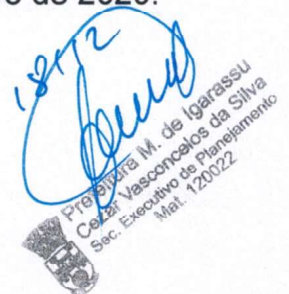 de 2020.
18/12
Prefeitura M. de Igarassu
Cezar Vasconcelos da Silva
Sec. Executivo de Planejamento
Mat. 120022